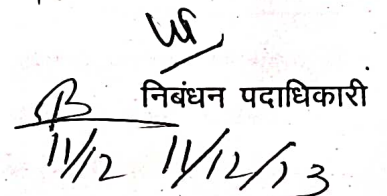 निबंधन पदाधिकारी
11/12 11/12/13